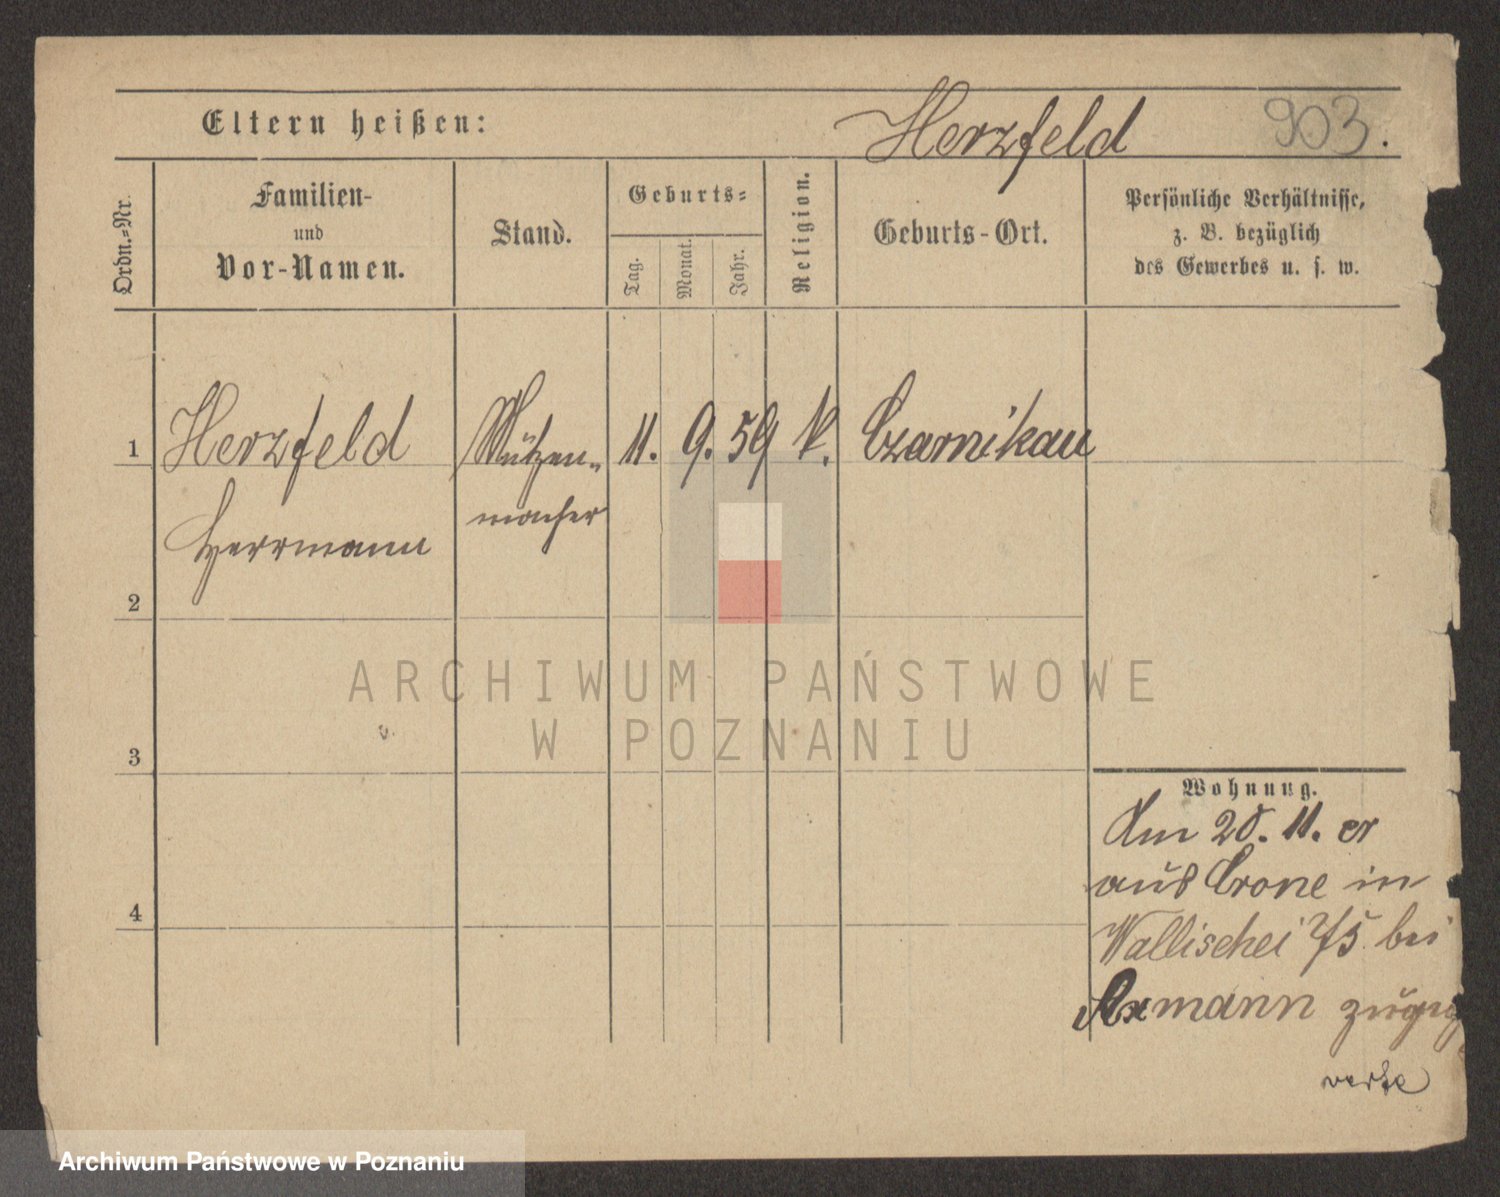 Eltern heißen:
Herzfeld
903.
Ordn.=Nr.
Familien-
und
Vor-Namen.
Stand.
Geburts=
Tag.
Monat.
Jahr.
Religion.
Geburts-Ort.
Persönliche Verhältnisse,
z. B. bezüglich
des Gewerbes u. s. w.
1 Herzfeld Mützen- 11. 9. 59 Czarnikau
Herrmann macher
2
3
4
Wohnung.
Am 20. 11. er
aus Crone in
Wallischei 75 bei
Armann
verte
ARCHIWUM PAŃSTWOWE
W POZNANIU
Archiwum Państwowe w Poznaniu